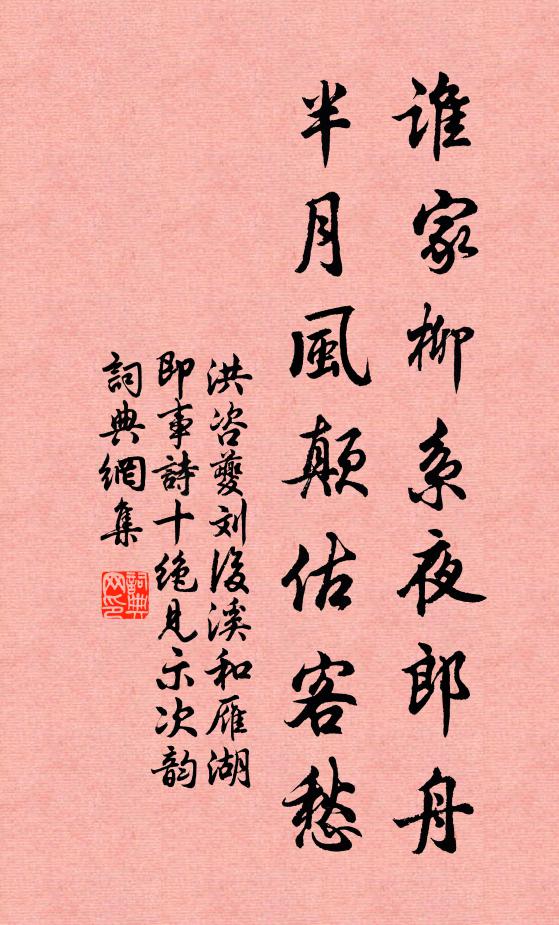 谁家柳系夜郎舟
半月風颠估客愁
洪咨夔刘後溪和雁湖
即事詩十绝見示次韵
詞典網集
詞典网印